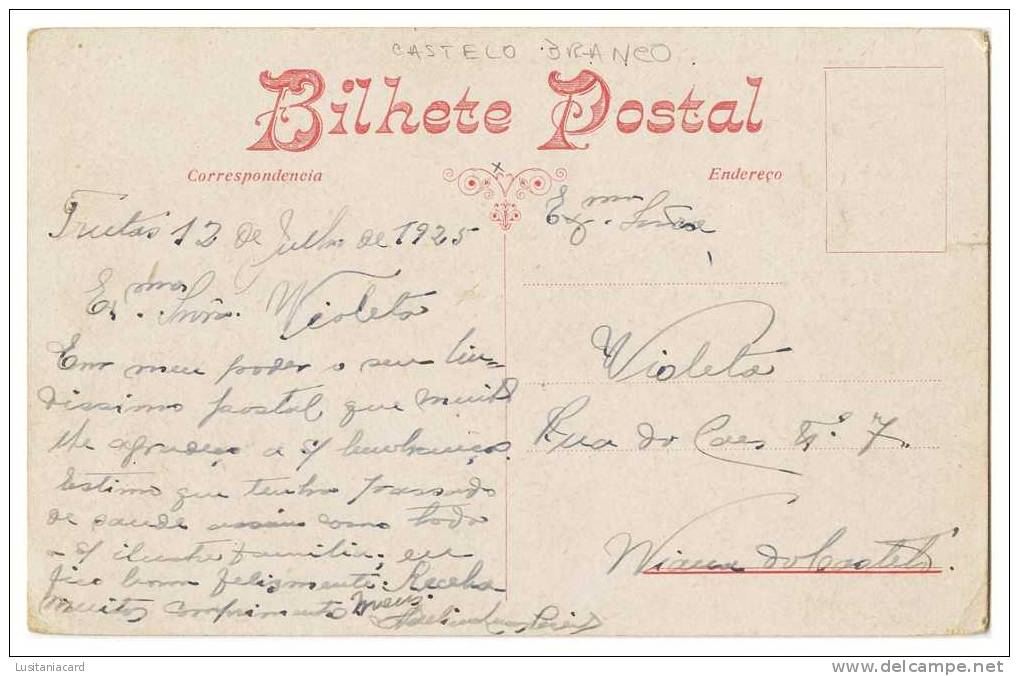 CASTELO BRANCO.
Bilhete Postal
Correspondencia
Endereço
12 de Julho de 1925
Ex.ma Snra. Violeta
Em meu poder o seu lin=
dissimo postal que muito
lhe agradeço a s/ lembrança.
Estimo que tenha passado
de saude assim como toda
a s/ ilustre familia, eu
fico bom felizmente. Receba
muitos comprimentos meus.
Ex.ma Snra
Violeta
Rua do Caes Nº 7.
Viana do Castelo.
Lusitaniacard
www.delcampe.net